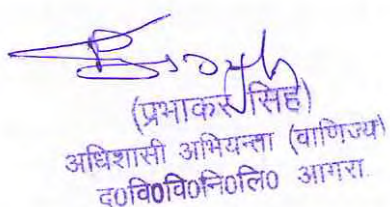 (प्रभाकर सिंह)
अधिशासी अभियन्ता (वाणिज्य)
द0वि0वि0नि0लि0 आगरा.